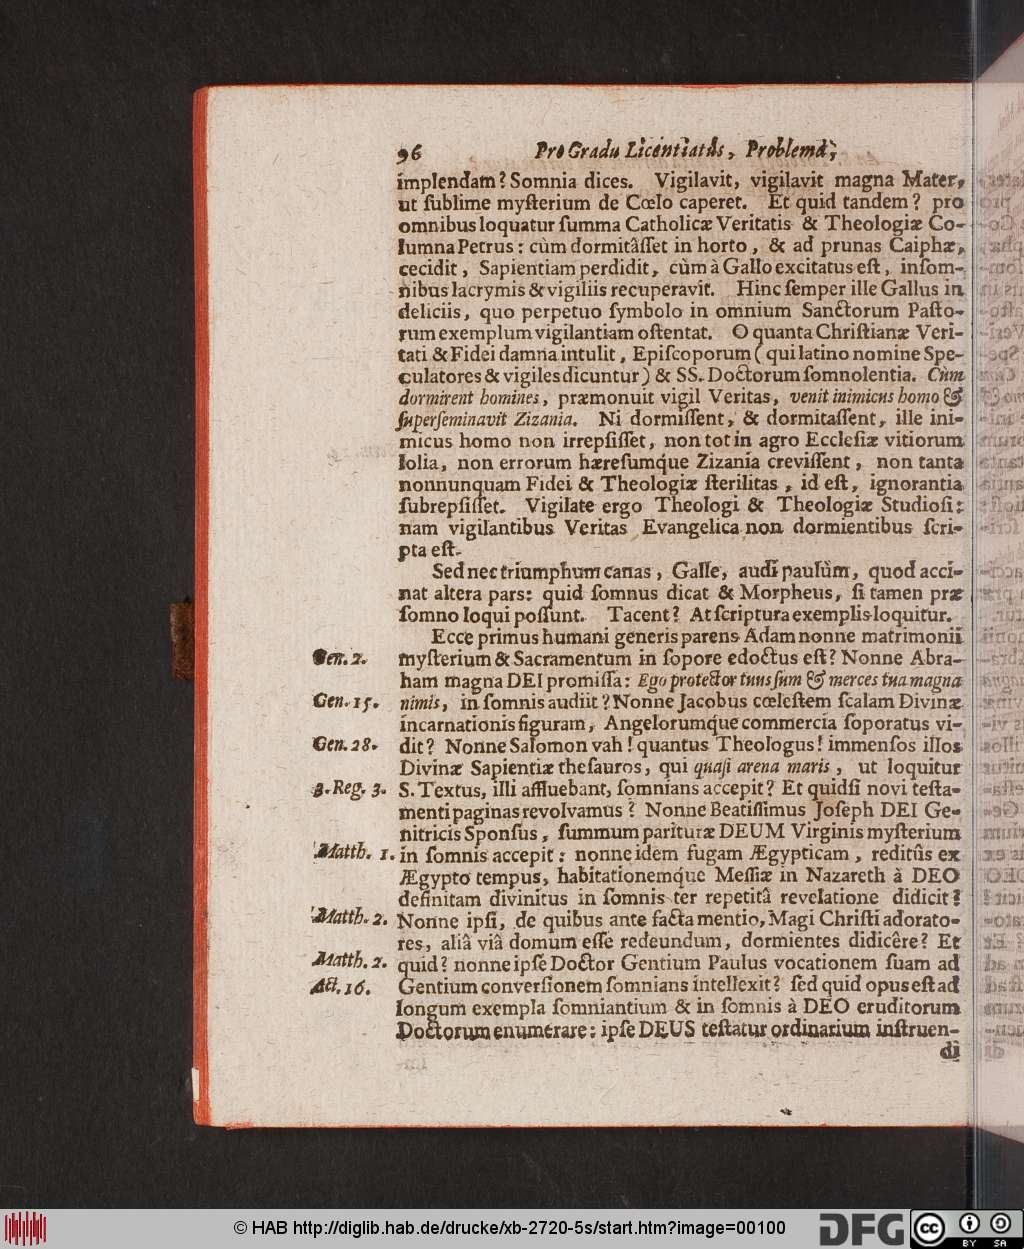 96 Pro Gradu Licentiatûs, Problema,
implendam? Somnia dices. Vigilavit, vigilavit magna Mater,
ut ſublime myſterium de Cœlo caperet. Et quid tandem? pro
omnibus loquatur ſumma Catholicæ Veritatis & Theologiæ Co-
lumna Petrus: cùm dormitâſſet in horto, & ad prunas Caiphæ,
cecidit, Sapientiam perdidit, cùm à Gallo excitatus eſt, inſom-
nibus lacrymis & vigiliis recuperavit. Hinc ſemper ille Gallus in
deliciis, quo perpetuo ſymbolo in omnium Sanctorum Paſto-
rum exemplum vigilantiam oſtentat. O quanta Chriſtianæ Veri-
tati & Fidei damna intulit, Epiſcoporum (qui latino nomine Spe-
culatores & vigiles dicuntur) & SS. Doctorum ſomnolentia. Cùm
dormirent homines, præmonuit vigil Veritas, venit inimicus homo &
ſuperſeminavit Zizania. Ni dormiſſent, & dormitaſſent, ille ini-
micus homo non irrepſiſſet, non tot in agro Eccleſiæ vitiorum
lolia, non errorum hæreſumq́ue Zizania creviſſent, non tanta
nonnunquam Fidei & Theologiæ ſterilitas, id eſt, ignorantia
ſubrepſiſſet. Vigilate ergo Theologi & Theologiæ Studioſi:
nam vigilantibus Veritas Evangelica non dormientibus ſcri-
pta eſt.
Sed nec triumphum canas, Galle, audi paulùm, quod acci-
nat altera pars: quid ſomnus dicat & Morpheus, ſi tamen præ
ſomno loqui poſſunt. Tacent? At ſcriptura exemplis loquitur.
Ecce primus humani generis parens Adam nonne matrimonii
Gen. 2. myſterium & Sacramentum in ſopore edoctus eſt? Nonne Abra-
ham magna DEI promiſſa: Ego protector tuus ſum & merces tua magna
Gen. 15. nimis, in ſomnis audiit? Nonne Jacobus cœleſtem ſcalam Divinæ
incarnationis figuram, Angelorumq́ue commercia ſoporatus vi-
Gen. 28. dit? Nonne Salomon vah! quantus Theologus! immenſos illos
Divinæ Sapientiæ theſauros, qui quaſi arena maris, ut loquitur
3. Reg. 3. S. Textus, illi affluebant, ſomnians accepit? Et quidſi novi teſta-
menti paginas revolvamus? Nonne Beatiſſimus Joſeph DEI Ge-
nitricis Sponſus, ſummum parituræ DEUM Virginis myſterium
Matth. 1. in ſomnis accepit: nonne idem fugam Ægypticam, reditûs ex
Ægypto tempus, habitationemq́ue Meſſiæ in Nazareth à DEO
definitam divinitus in ſomnis ter repetitâ revelatione didicit?
Matth. 2. Nonne ipſi, de quibus ante facta mentio, Magi Chriſti adorato-
res, aliâ viâ domum eſſe redeundum, dormientes didicêre? Et
Matth. 2. quid? nonne ipſe Doctor Gentium Paulus vocationem ſuam ad
Act. 16. Gentium converſionem ſomnians intellexit? ſed quid opus eſt ad
longum exempla ſomniantium & in ſomnis à DEO eruditorum
Doctorum enumerare: ipſe DEUS teſtatur ordinarium inſtruen-
di
© HAB http://diglib.hab.de/drucke/xb-2720-5s/start.htm?image=00100
DFG
cc BY SA